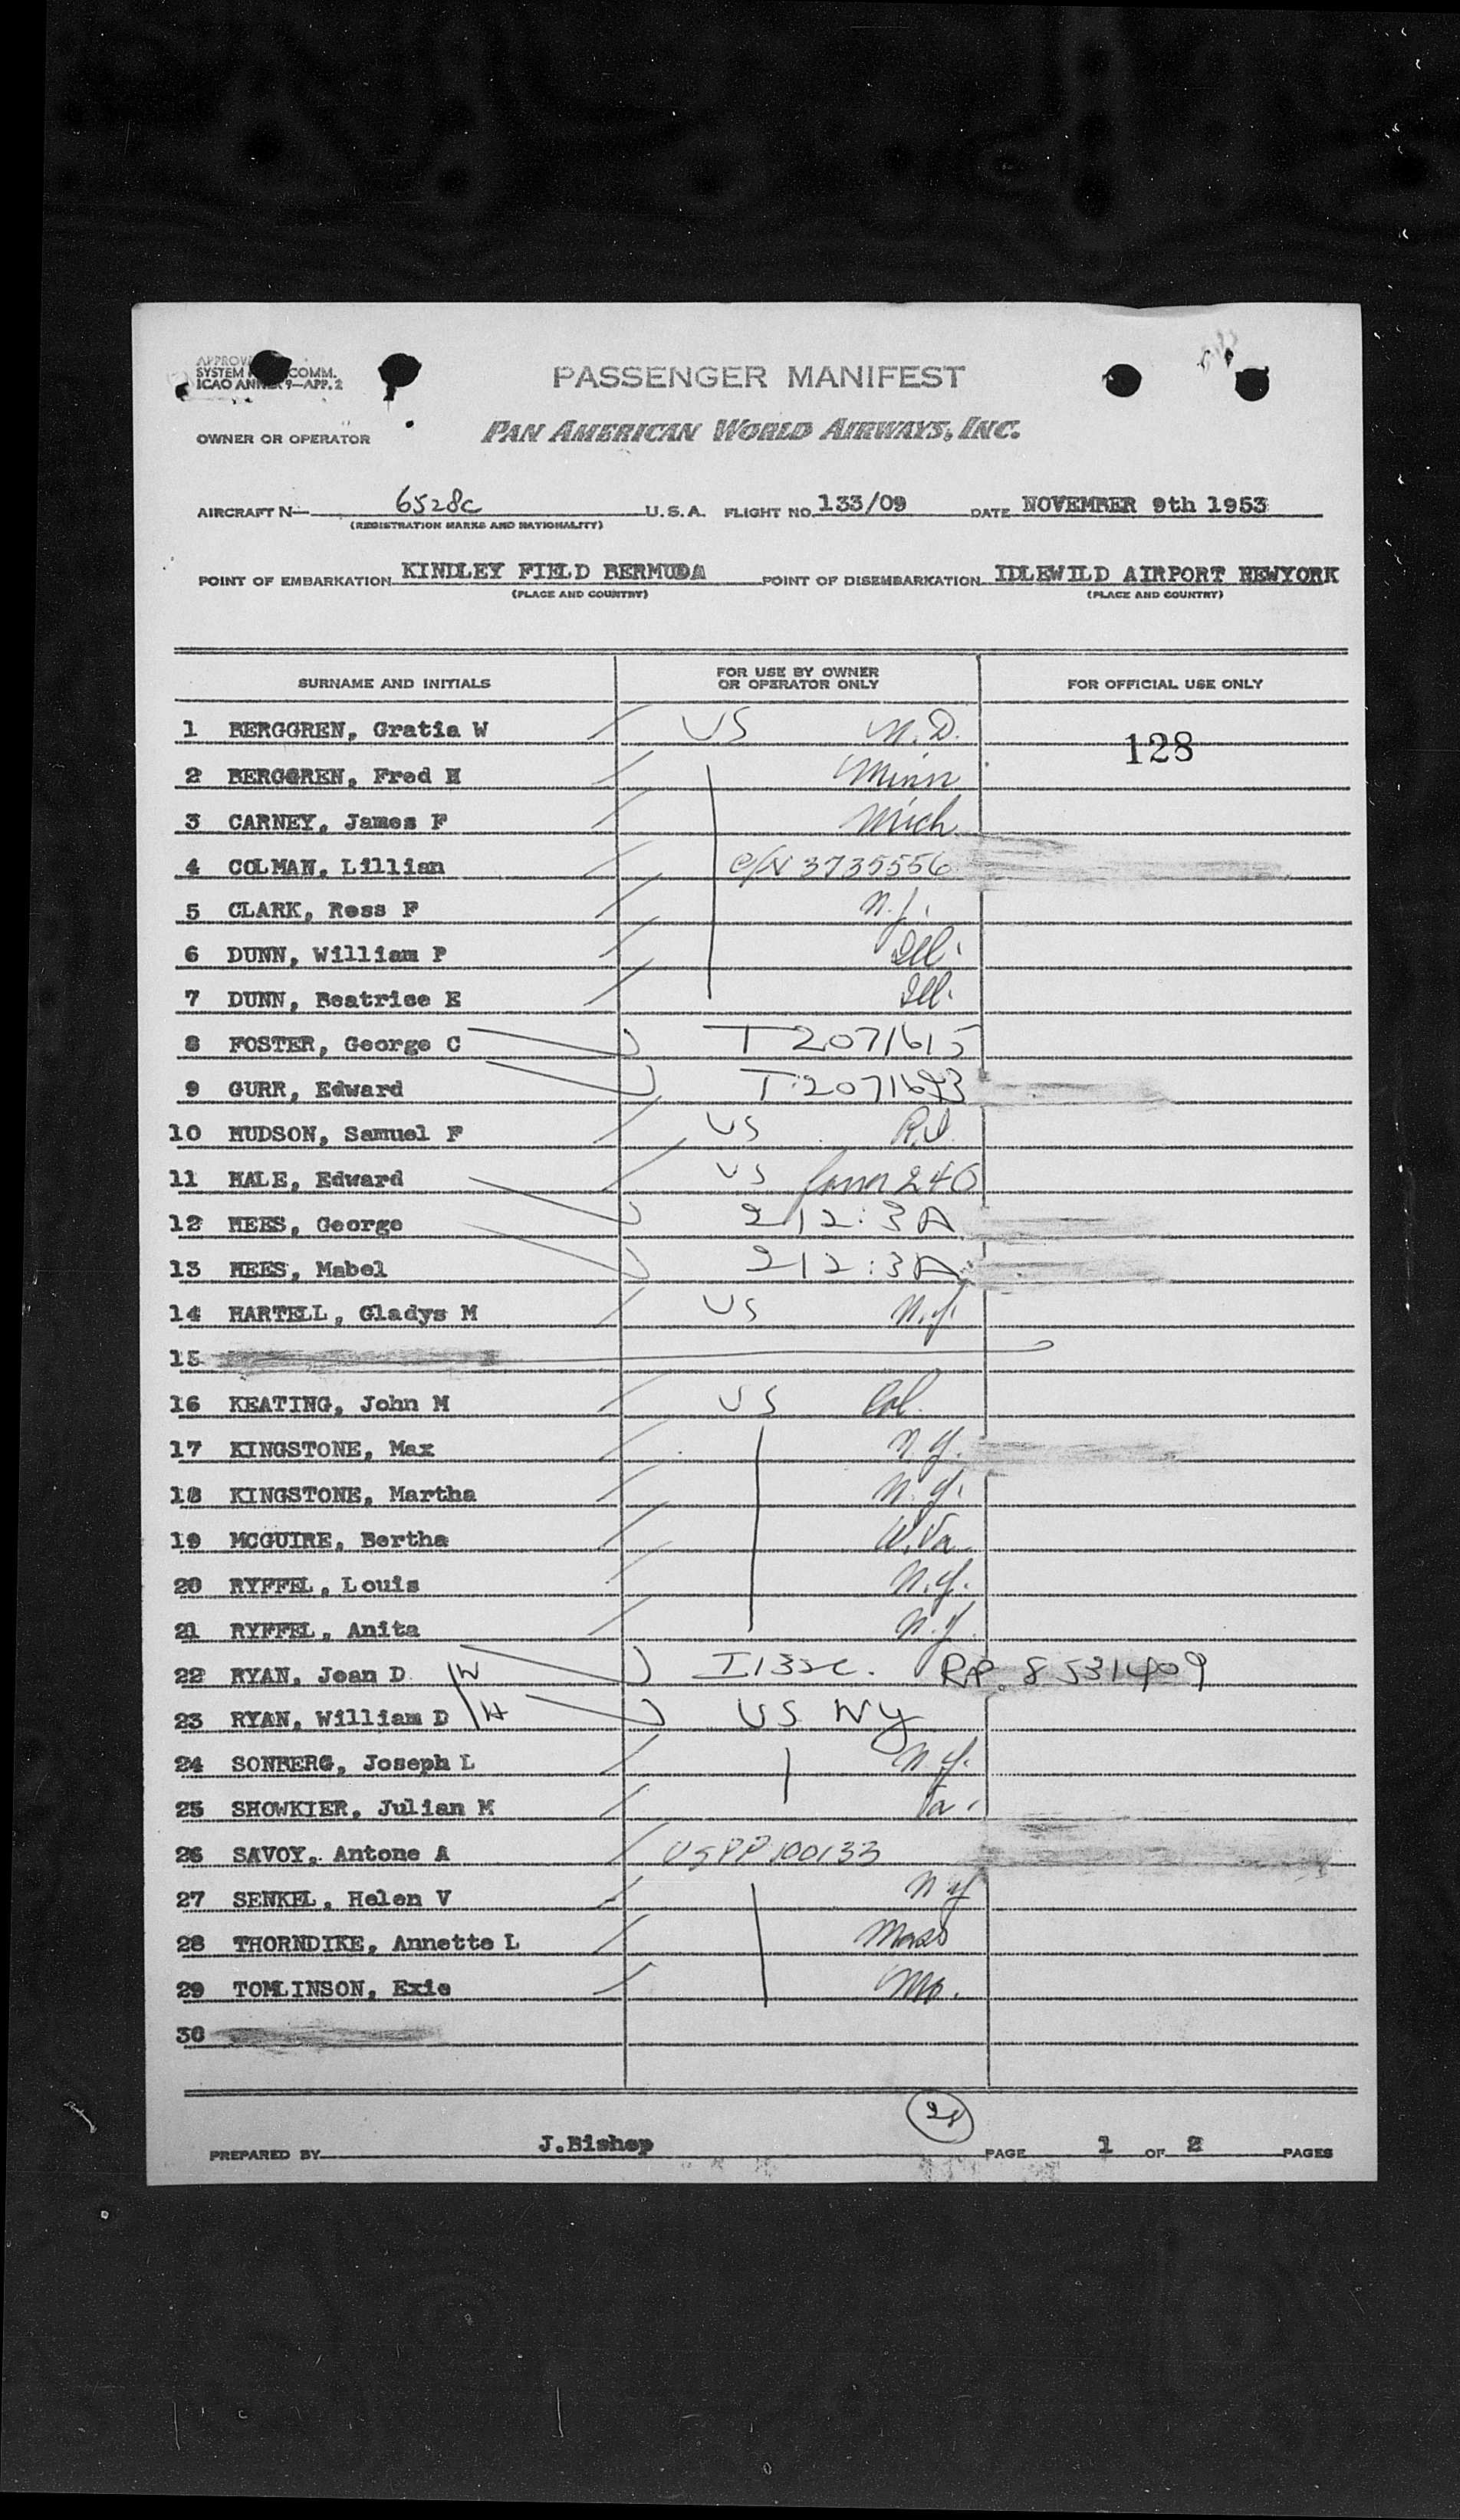 SYSTEM COMM.
ICAO ANNEX 9—APP. 2
PASSENGER MANIFEST
OWNER OR OPERATOR PAN AMERICAN WORLD AIRWAYS, INC.
AIRCRAFT N— 6528C U.S.A. FLIGHT NO. 133/09 DATE NOVEMBER 9th 1953
(REGISTRATION MARKS AND NATIONALITY)
POINT OF EMBARKATION KINDLEY FIELD BERMUDA POINT OF DISEMBARKATION IDLEWILD AIRPORT NEWYORK
(PLACE AND COUNTRY) (PLACE AND COUNTRY)
SURNAME AND INITIALS FOR USE BY OWNER OR OPERATOR ONLY FOR OFFICIAL USE ONLY
1 BERGGREN, Gratia W US N.D.
128
2 BERGGREN, Fred H Minn
3 CARNEY, James F Mich
4 COLMAN, Lillian C/N 3735556
5 CLARK, Ross F N.J.
6 DUNN, William P Del.
7 DUNN, Beatrice E Del.
8 FOSTER, George C T 2071615
9 GURR, Edward
10 HUDSON, Samuel F US R.I.
11 HALE, Edward US 240
12 HEES, George 212:3A
13 HEES, Mabel 212:3A
14 HARTELL, Gladys M US N.Y.
15
16 KEATING, John M US Cal.
17 KINGSTONE, Max N.Y.
18 KINGSTONE, Martha N.Y.
19 MCGUIRE, Bertha W.Va
20 RYFFEL, Louis N.Y.
21 RYFFEL, Anita N.Y.
22 RYAN, Jean D W I132C. RP. 8531409
23 RYAN, William D H US NY
24 SONBERG, Joseph L N.Y.
25 SHOWKIER, Julian M Pa.
26 SAVOY, Antone A USPP 100133
27 SENKEL, Helen V NY
28 THORNDIKE, Annette L Mass
29 TOMLINSON, Exie Mo.
30
28
PREPARED BY J.Bishop PAGE 1 OF 2 PAGES